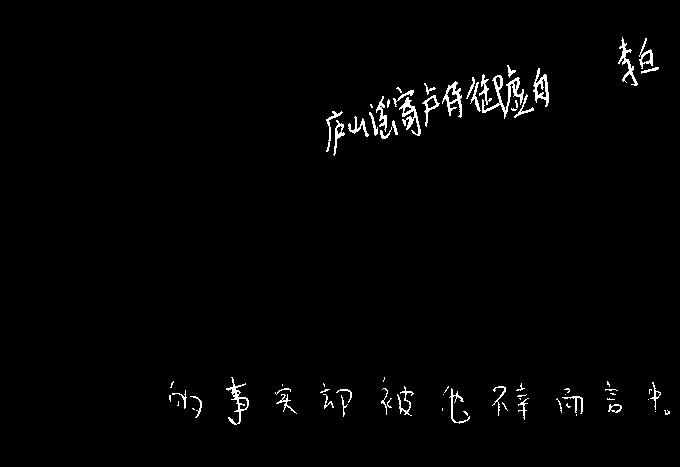 庐山谣寄卢侍御虚舟 李白
的事实却被他不幸而言中。